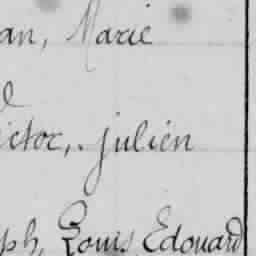 an, Marie
e
ictor, Julien
ph, Louis Edouard